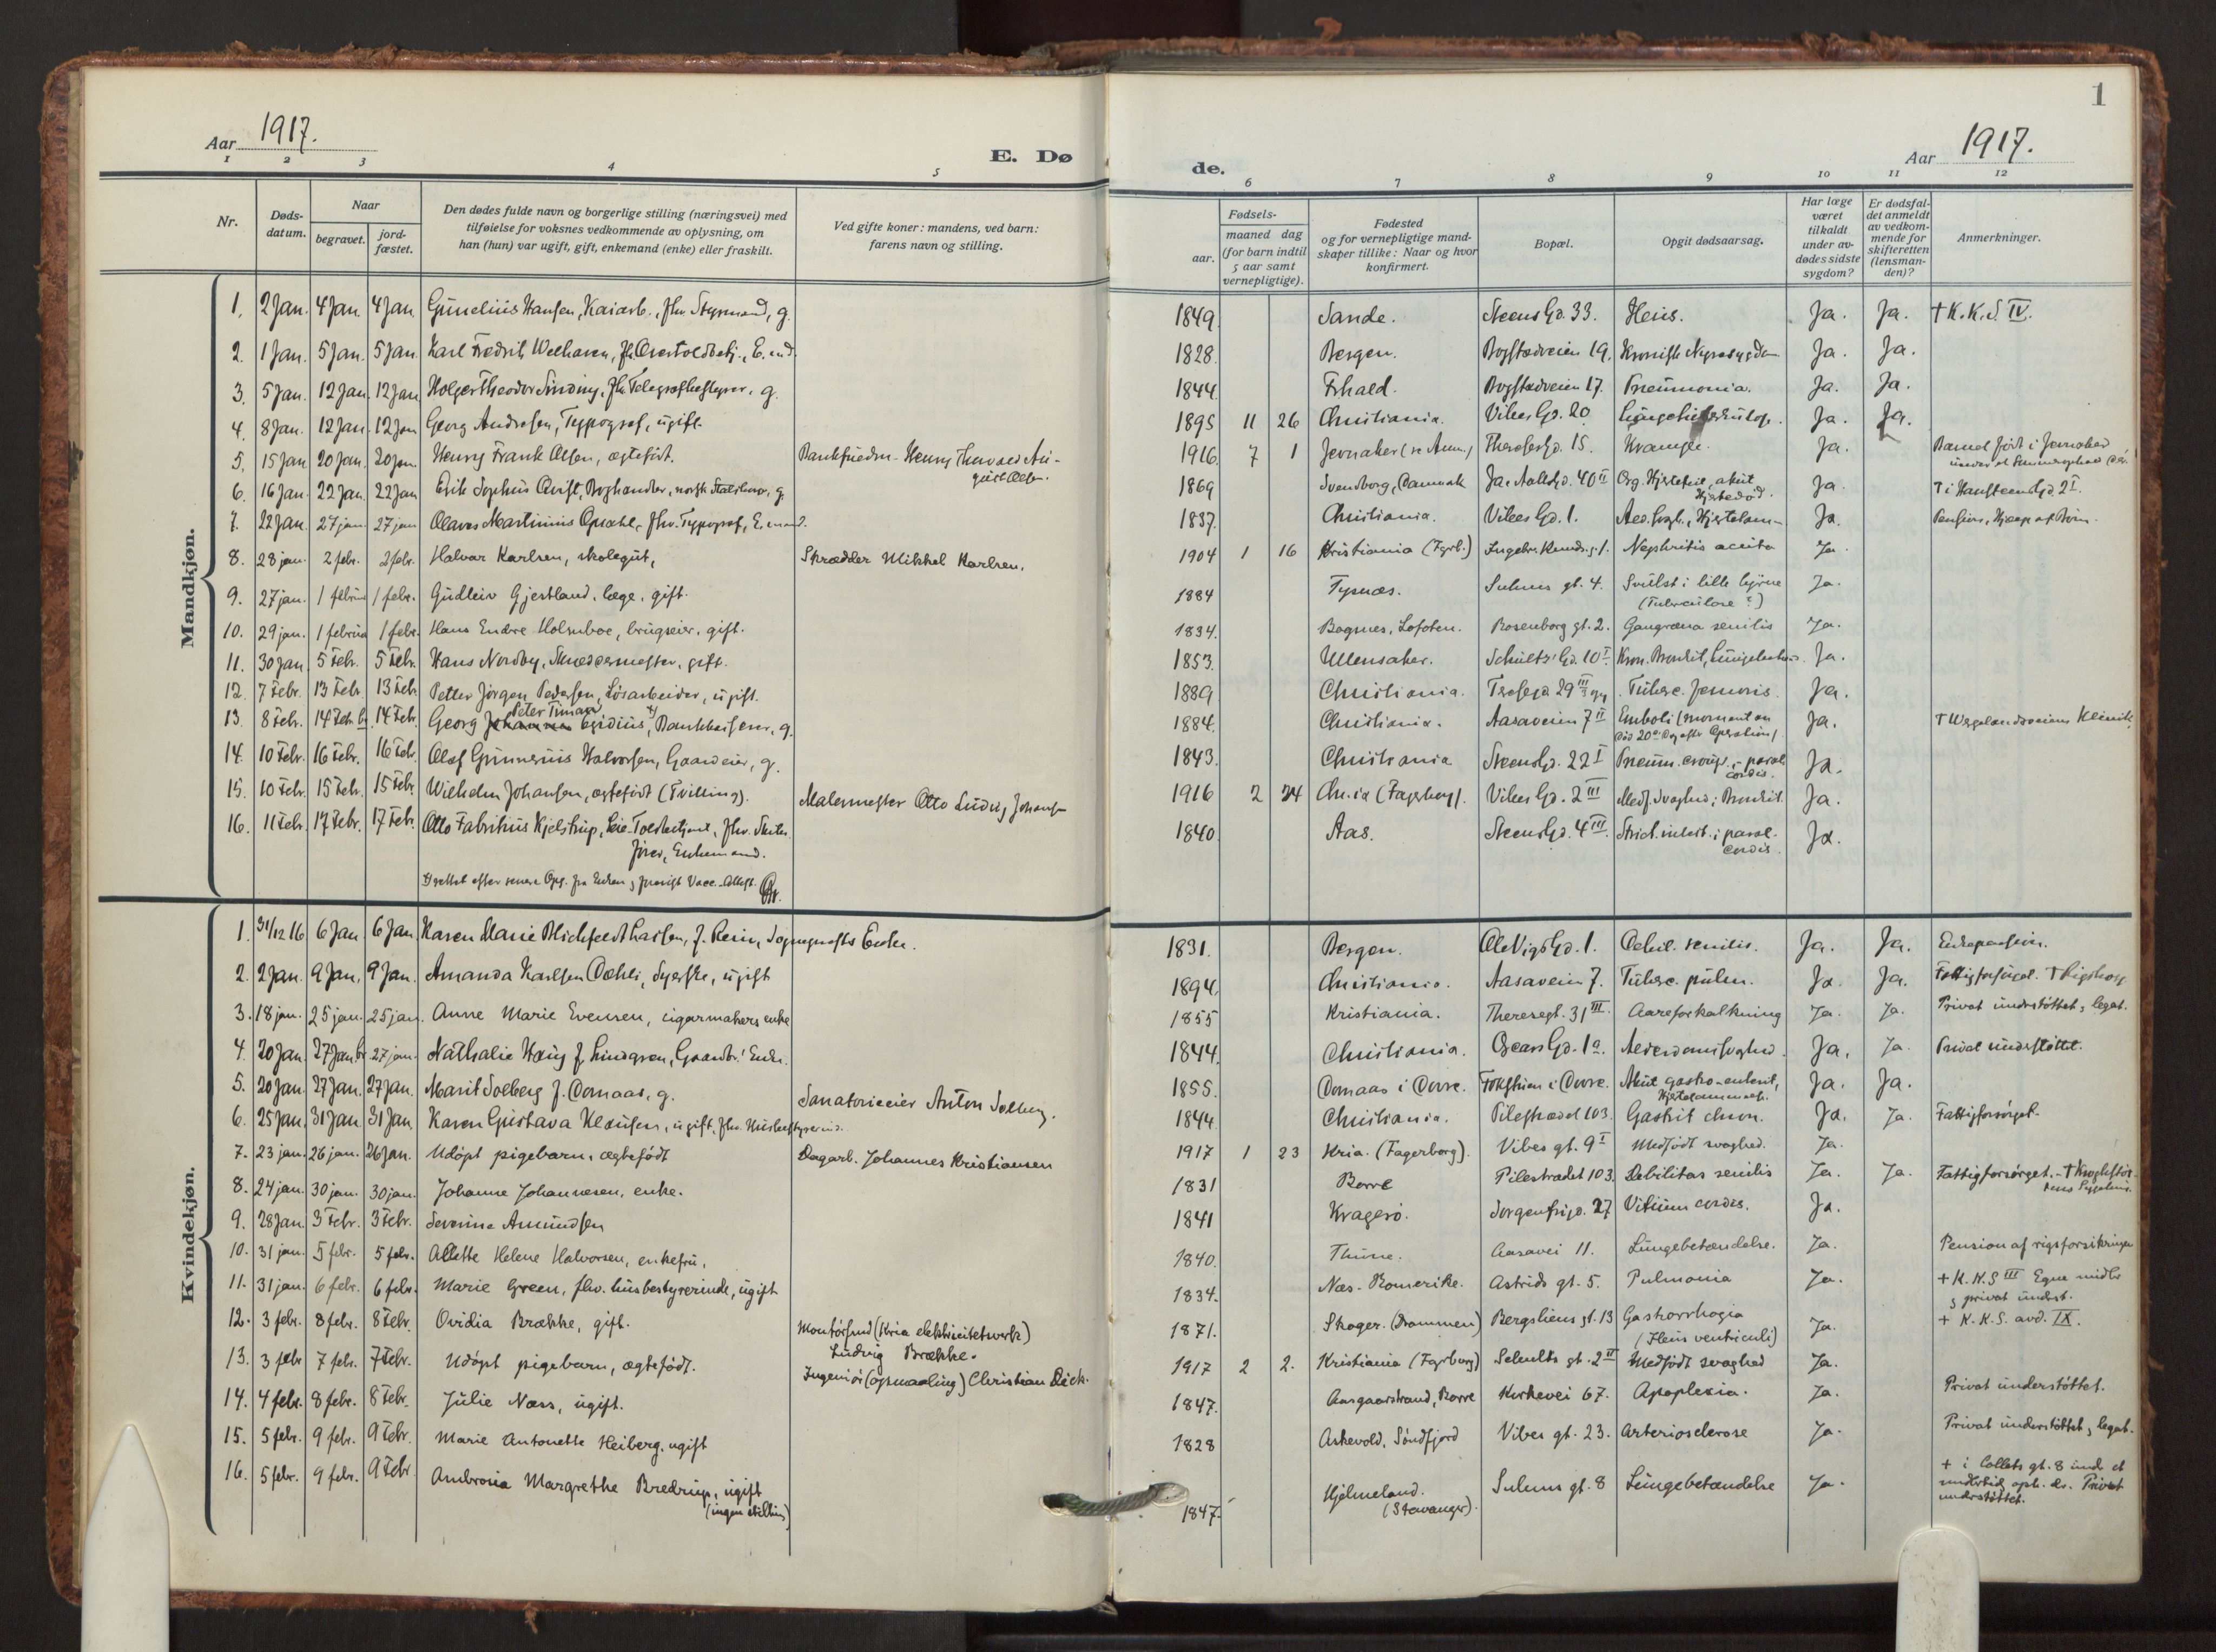 1
Aar 1917.
E. Dø
de.
Aar 1917.
1 2 3 4 5 6 7 8 9 10 11 12
Nr.
Døds-
datum.
Naar
begravet.
jord-
fæstet.
Den dødes fulde navn og borgerlige stilling (næringsvei) med
tilføielse for voksnes vedkommende av oplysning, om
han (hun) var ugift, gift, enkemand (enke) eller fraskilt.
Ved gifte koner: mandens, ved barn:
farens navn og stilling.
Fødsels-
aar.
maaned dag
(for barn indtil
5 aar samt
vernepligtige).
Fødested
og for vernepligtige mand-
skaper tillike: Naar og hvor
konfirmert.
Bopæl.
Opgit dødsaarsag.
Har læge
været
tilkaldt
under av-
dødes sidste
sygdom?
Er dødsfal-
det anmeldt
av vedkom-
mende for
skifteretten
(lensman-
den)?
Anmerkninger.
Mandkjøn.
1. 2 Jan. 4 Jan. 4 Jan. Gunelius Hansen, Kaiarb., fhv. Styrmand, g. 1849. Sande. Steens Gd. 33. Ileus. Ja. Ja. † K. K. S. IV.
2. 1 Jan. 5 Jan. 5 Jan. Karl Fredrik Welhaven, E.md. 1828. Bergen. Bogstadveien 19. Kronisk Nyresygdom Ja. Ja.
3. 5 Jan. 12 Jan. 12 Jan. Holger Theodor Sinding, fhv. Telegrafbestyrer, g. 1844. Frhald. Bogstadveien 17. Pneumonia. Ja. Ja.
4. 8 Jan. 12 Jan. 12 Jan Georg Andresen, Typograf, ugift. 1895 11 26 Christiania. Vibes Gd. 20 Ja. Ja.
5. 15 Jan 20 Jan. 20 Jan. Henry Frank Olsen, ægtefødt. Henry Thorvald 1916 7 1 Jevnaker (se Anm.) Theresesgd. 15. Krampe. Ja. Barnet født i Jevnaker
6. 16 Jan. 22 Jan. 22 Jan Erik Sophus Qvist, Boghandler, norsk Statsborger, g. 1869 Svendborg, Danmark Ja. Aallsgd. 40 II Org. Hjertefeil, akut
Hjertedød. Ja. † i Hansteensgd. 2 I.
7. 22 Jan. 27 jan. 27 jan Olaves Martinius Opsahl, fhv. Typograf, E.mand. 1837. Christiania. Vibes Gd. 1. Ja. Pension, Hjælp af Børn.
8. 28 jan. 2 febr. 2 febr. Halvar Karlsen, skolegut, Skrædder Mikkel Karlsen. 1904 1 16 Kristiania (Fgrb.) Ingebr. Knuds. g. 1. Nephritis acuta Ja
9. 27 jan. 1 februar 1 febr. Gudleiv Gjestland, læge, gift. 1884 Tysnæs. Suhms gt. 4. Svulst i lille hjerne
(Tuberculose ?) Ja.
10. 29 jan. 1 februar 1 febr. Hans Endre Holmboe, brugseier, gift. 1834. Bogsnes, Lofoten. Rosenborg gt. 2. Gangræna senilis Ja.
11. 30 Jan. 5 Febr. 5 Febr. Hans Nordby, Skræddermester, gift. 1853. Ullensaker. Schultz' Gd. 10 I. Kron. Bronkit, Ja.
12. 7 Febr. 13 Febr. 13 Febr Petter Jörgen Pedersen, Løsarbeider, ugift. 1889 Christiania. Tuberc. femoris. Ja.
13. 8 Febr. 14 Febr. 14 Febr. Georg Peter Timan x) Egidius, Bankkasserer, g. 1884. Christiania. Aasaveien 7 II Emboli (momentan
død 20de Dag efter Operation) Ja. † Wergelandsveiens Klinik
14. 10 Febr. 16 Febr. 16 Febr. Olaf Gunnerius Halvorsen, Gaardeier, g. 1843. Christiania Steens Gd. 22 I Pneum. croup.; paral.
cordis. Ja.
15. 10 Febr. 15 Febr. 15 Febr. Wilhelm Johansen, ægtefødt (Tvilling). Malermester Otto Ludvig Johansen 1916 2 24 Ch.ia (Fagerborg). Vibes Gd. 2 III Medf. Svaghed; Bronkit. Ja.
16. 11 Febr. 17 Febr. 17 Febr. Otto Fabritius Kjelstrup, 
Enkemand. 1840. Aas. Steens Gd. 4 III. paral.
cordis. Ja.
x) rettet efter senere Opg. fra Enken
Kvindekjøn.
1. 31/12 16 6 Jan 6 Jan Karen Marie Blichfeldt Larsen, f. Rein, Sogneprests Enke. 1831. Bergen. Ole Vigs Gd. 1. Debil. senilis. Ja. Ja. Enkepension.
2. 2 Jan. 9 Jan. 9 Jan. Amanda Karlsen Dæhli, Syerske, ugift 1894. Christiania. Aasaveien 7. Tuberc. pulm. Ja. Ja. Fattigforsörget. † Rigshosp
3. 18 jan. 25 jan. 25 jan. Anne Marie Evensen, cigarmakers enke 1855 Kristiania. Theresegt. 31 III. Aareforkalkning Ja. Ja. Privat understöttet, legat.
4. 20 Jan. 27 Jan. 27 jan. Nathalie Haug f. Lindgren, Gaardbr.' Enke. 1844. Christiania. Oscars Gd. 1 a. Alderdomssvaghed. Ja. Ja. Privat understöttet.
5. 20 Jan. 27 Jan. 27 Jan. Marit Solberg f. Domaas, g. Sanatorieeier Anton Solberg. 1855. Domaas i Dovre. Fokstuen i Dovre. Akut gastro-enterit, Ja. Ja.
6. 25 Jan. 31 Jan. 31 Jan. Karen Gustava Klausen, ugift, fhv. Husbestyrerinde. 1844. Christiania. Pilestrædet 103. Gastrit chron. Ja. Ja Fattigforsörget.
7. 23 jan. 26 jan. 26 jan. Udöpt pigebarn, ægtefödt Dagarb. Johannes Kristiansen 1917 1 23 Kria. (Fagerborg). Vibes gt. 9 I Medfödt svaghed. Ja.
8. 24 jan. 30 jan. 30 jan. Johanne Johannesen, enke. 1831 Borre Pilestrædet 103. Debilitas senilis Ja. Ja. Fattigforsörget. - † Krogstöt-
tens Sygehus.
9. 28 Jan. 3 Febr. 3 Febr. Severine Amundsen 1841 Kragerö. Sorgenfrigd. 27 Vitium cordis. Ja.
10. 31 jan. 5 febr. 5 febr. Alette Helene Halvorsen, enkefru. 1840. Thune. Aasavei 11. Lungebetændelse. Ja. Pension af rigsforsikringen
11. 31 jan. 6 febr. 6 febr. Marie Green, fhv. husbestyrerinde, ugift 1834. Næs. Romerike. Astrids gt. 5. Pulmonia Ja. † K. K. S III Egne midler
& privat underst.
12. 3 febr. 8 febr. 8 Febr. Ovidia Brække, gift. Montörfmd (Kria elektricitetsverk)
Ludvig Brække. 1871. Skoger. (Drammen) Bergsliens gt. 13 Gastorrhagia
(Ileus ventriculi) Ja. † K. K. S. avd. IX.
13. 3 febr 7 febr. 7 Febr. Udöpt pigebarn, ægtefödt. Ingeniör (opmaaling) Christian Dick. 1917 2 2. Kristiania (Fgrborg) Schultz gt. 2 II Medfödt svaghed Ja.
14. 4 febr. 8 febr. 8 Febr. Julie Næss, ugift. 1847. Aasgaardstrand, Borre Kirkevei 67. Apoplexia. Ja. Privat understöttet.
15. 5 febr. 9 febr. 9 Febr. Marie Antonette Heiberg, ugift 1828 Askevold, Söndfjord Vibes gt. 23. Arteriosclerose Ja. Privat understöttet, legat.
16. 5 febr. 9 febr. 9 Febr Ambrosia Margrethe Bredrup, ugift
(ingen stilling) 1847. Hjelmeland.
(Stavanger). Suhms gt. 8 Lungebetændelse Ja. † i Collets gt. 8 und. et
midlertidig oph. der. Privat
understöttet.